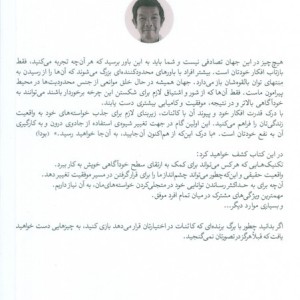 هیچ چیز در این جهان تصادفی نیست و شما باید به این باور برسید که هر آن‌چه تجربه می‌کنید، فقط
بازتاب افکار خودتان است. بیشتر افراد با باورهای محدودکننده‌ای بزرگ می‌شوند که آن‌ها را از رسیدن به
منتهای توان بالقوه‌شان باز می‌دارد. جهان همیشه در حال خلق موانعی از جنس محدودیت‌ها در محیط
پیرامون ماست. فقط آن‌ها که از شور و اشتیاق لازم برای شکستن این چرخه برخوردار باشند می‌توانند به
خودآگاهی بالاتر و در نتیجه، موفقیت و کامیابی بیشتری دست یابند.
با درک قدرت افکار خود و پیوند آن با کائنات، زیربنای لازم برای جذب خواسته‌های خود به واقعیت
زندگی‌تان را فراهم می‌کنید. این اولین گام در جهت تغییر شیوه‌ی استفاده از جادوی درون و به کارگیری
آن به نفع خودتان است. «با درک این‌که از هم‌اکنون آن‌جایید، به آن‌جا خواهید رسید.» (بودا)
در این کتاب کشف خواهید کرد:
تکنیک‌هایی که هر کس می‌تواند برای کمک به ارتقای سطح خودآگاهی خویش به کار ببرد.
واقعیت حقیقی و این‌که چطور می‌تواند چشم‌انداز ما را برای قرار گرفتن در مسیر موفقیت تغییر دهد.
آن‌چه برای به حداکثر رساندن توانایی خود در متجلی‌کردن خواسته‌های‌مان، به آن نیاز داریم.
مهم‌ترین ویژگی‌های مشترک در میان تمام افراد موفق.
و بسیاری موارد دیگر...
اگر بدانید چطور با برگ برنده‌ای که کائنات در اختیارتان قرار می‌دهد بازی کنید، به چیزهایی دست خواهید
یافت که قبلاً هرگز در تصورتان نمی‌گنجید.